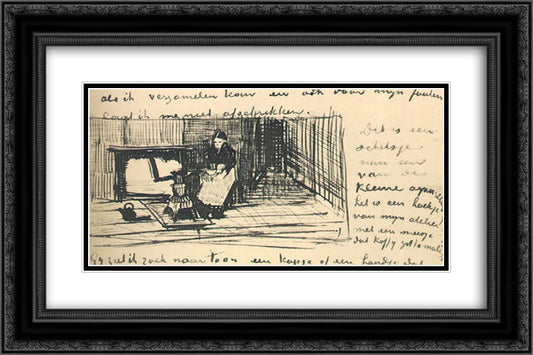 als ik verzamelen kan en ook voor mijn fouten
laat ik me niet afschrikken.
Dit is een
schetsje
van een
van de
kleine aquarellen
het is een hoekje
van mijn atelier
met een meisje
dat koffij
Gij zult ik zoek naar toon een kopje of een handje dat